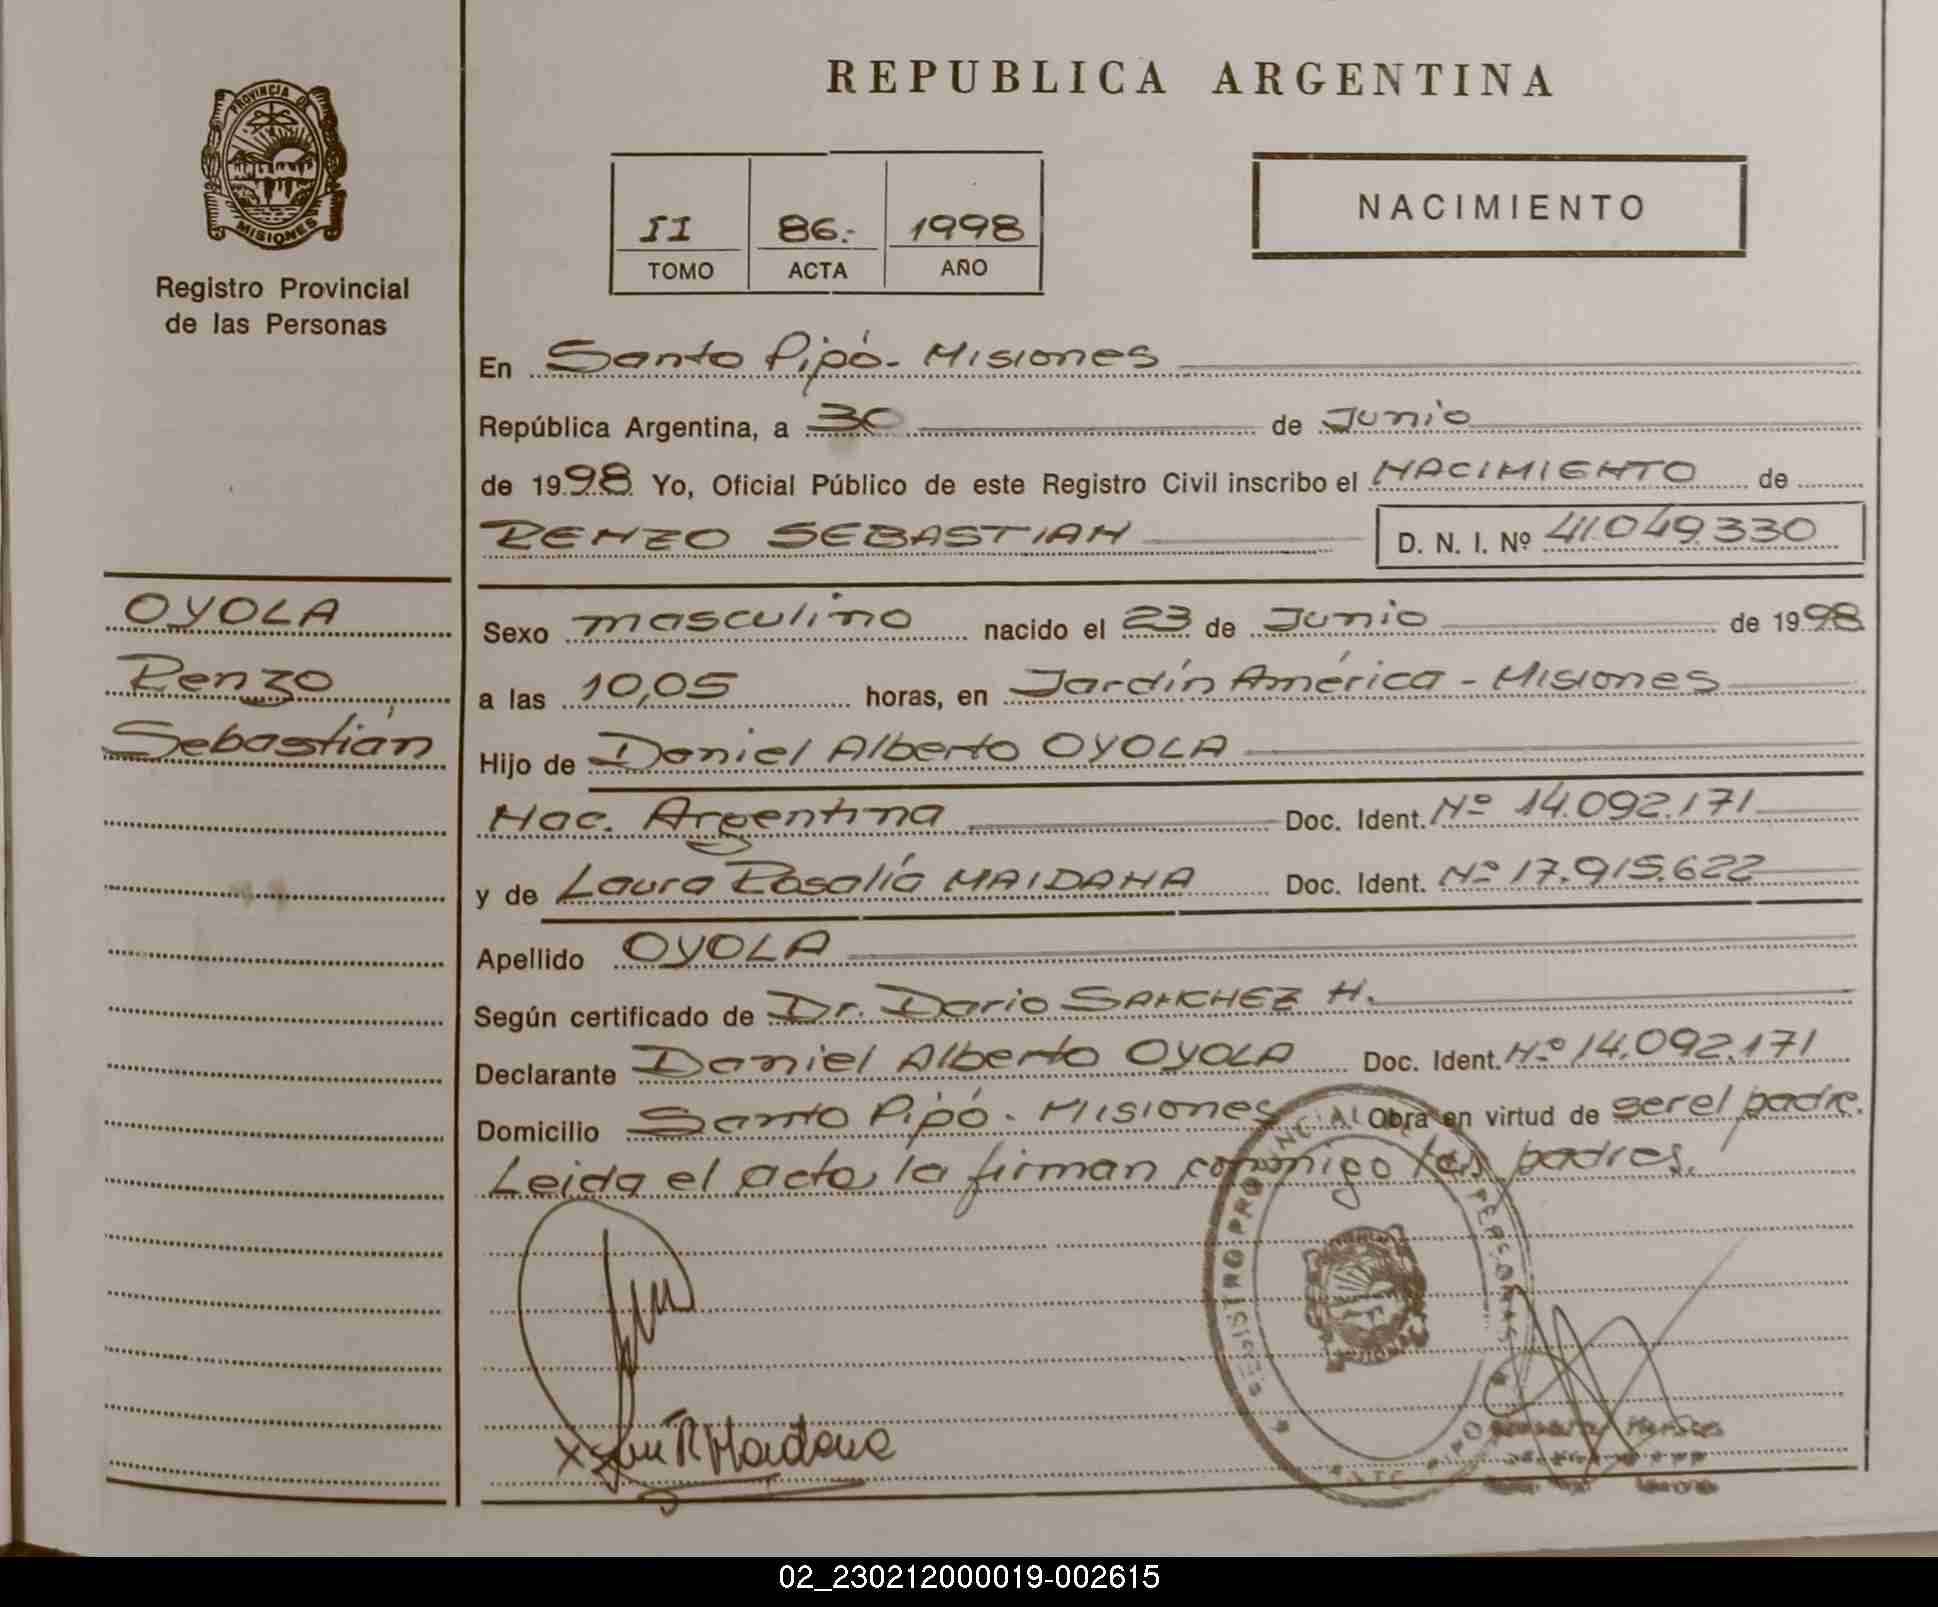 PROVINCIA DE
MISIONES
Registro Provincial
de las Personas
OYOLA
Renzo
Sebastián
REPUBLICA ARGENTINA
II 86.- 1998
TOMO ACTA AÑO
NACIMIENTO
En Santo Pipó - Misiones
República Argentina, a 30 de Junio
de 1998 Yo, Oficial Público de este Registro Civil inscribo el NACIMIENTO de
RENZO SEBASTIAN D. N. I. Nº 41.049.330
Sexo masculino nacido el 23 de Junio de 1998
a las 10,05 horas, en Jardín América - Misiones
Hijo de Daniel Alberto OYOLA
Nac. Argentina Doc. Ident. Nº 14.092.171
y de Laura Rosalía MAIDANA Doc. Ident. Nº 17.915.622
Apellido OYOLA
Según certificado de Dr. Dario SANCHEZ H.
Declarante Daniel Alberto OYOLA Doc. Ident. Nº 14.092.171
Domicilio Santo Pipó - Misiones Obra en virtud de ser el padre.
Leida el acta, la firman conmigo los padres.
REGISTRO PROVINCIAL PERSONAS
R Maidana
02_230212000019-002615